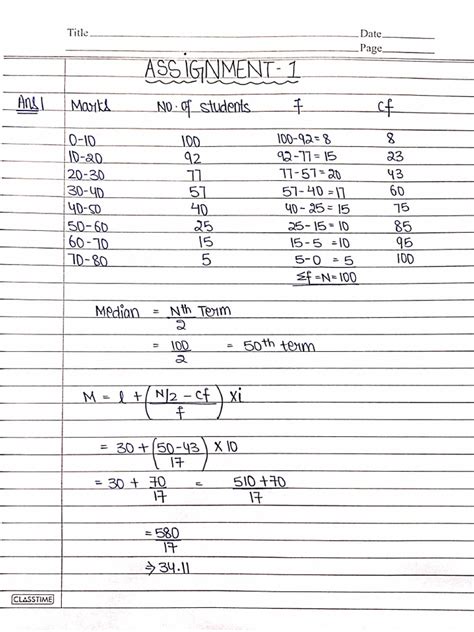 Title
Date
Page
ASSIGNMENT-1
Ans1 Marks No. of students f cf
0-10 100 100-92=8 8
10-20 92 92-77=15 23
20-30 77 77-57=20 43
30-40 57 57-40=17 60
40-50 40 40-25=15 75
50-60 25 25-15=10 85
60-70 15 15-5=10 95
70-80 5 5-0=5 100
Σf=N=100
Median = Nth Term
2
= 100 = 50th term
2
M = l + (N/2 - cf) xi
f
= 30 + (50-43) x 10
17
= 30 + 70 = 510+70
17 17
= 580
17
⇒ 34.11
CLASSTIME